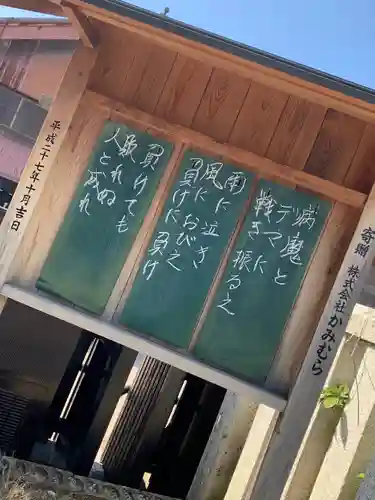 寄贈 株式会社かみむら
病魔と
デマに
戦き 振るえ
雨に泣き
風におびえ
負けに負け
負けても
れぬ
人
平成二十七年十月吉日